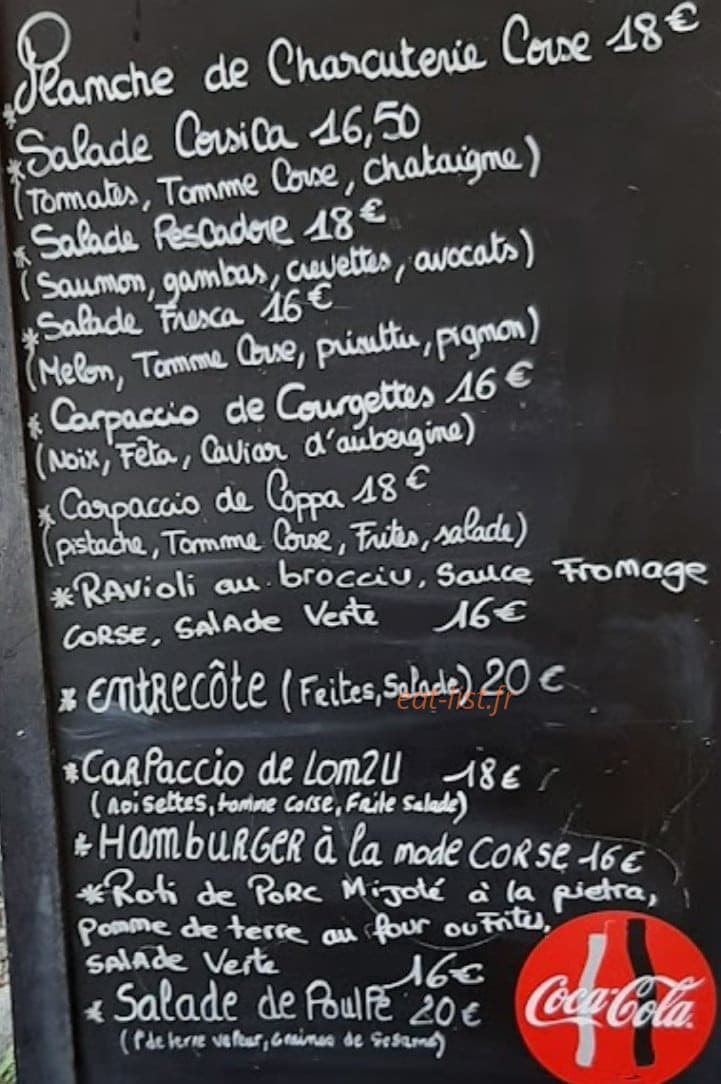 * Planche de Charcuterie Corse 18€
* Salade Corsica 16,50
(Tomates, Tomme Corse, chataigne)
* Salade Pescadore 18€
(Saumon, gambas, crevettes, avocats)
* Salade Fresca 16€
(Melon, Tomme Corse, prisuttu, pignon)
* Carpaccio de Courgettes 16€
(Noix, Fêta, Caviar d'aubergine)
* Carpaccio de Coppa 18€
(pistache, Tomme Corse, Frites, salade)
* RAVioli au brocciu, Sauce Fromage
CORSE, SALADE Verte 16€
* entRecôte (Frites, Salade) 20€
eat-list.fr
* CARPaccio de Lomzu 18€
(noisettes, tomme corse, Frite Salade)
* HAMbURGER à la mode CORSE 16€
* Roti de PORC Mijoté à la pietra,
pomme de terre au four ou Frites,
SALADE Verte 16€
* Salade de Poulpe 20€
(P de terre vapeur, Graines de Sesame)
Coca-Cola